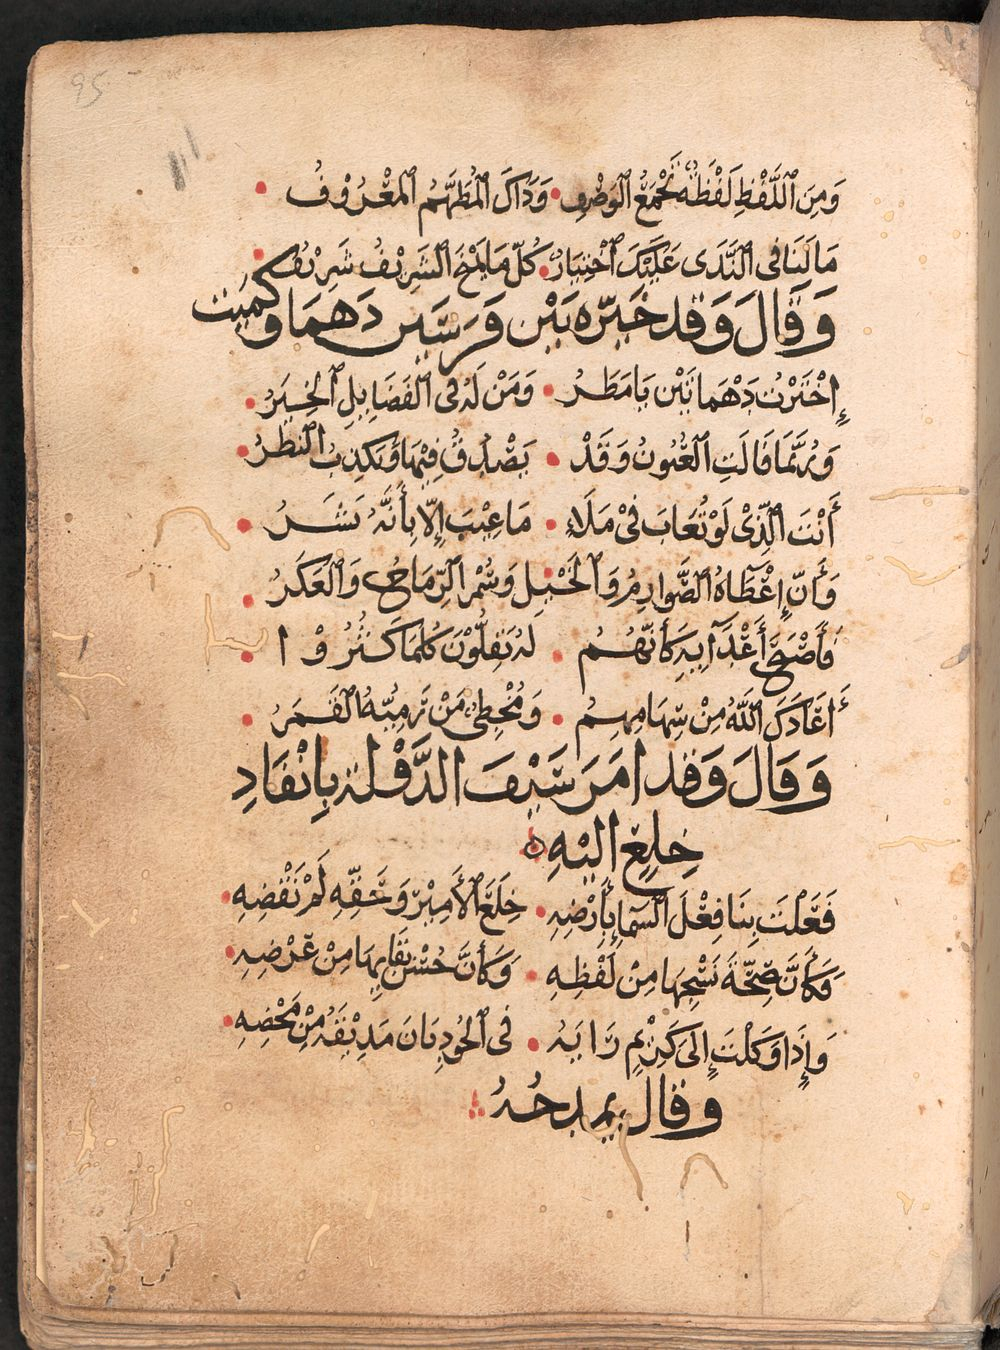 95
وَمِنَ اللَّفْظِ لَفْظَةٌ تَجْمَعُ الوَصْفِ • وَذَاكَ المُطَهَّمُ المَعْرُوفُ
مَا لَنَا فِي النَّدَى عَلَيْكَ اخْتِيَارٌ • كُلُّ مَا يَمْنَحُ الشَّرِيْفُ شَرِيْفُ
وَقَالَ وَقَد خَيَّرَه بَيْن فَرَسَيْن دَهمَا وَكُمَيت
إِخْتَرْتُ دَهْمَا تَيْنِ يَا مَطَرُ • وَمَنْ لَهُ فِي الفَضَايِلِ الخِيَرُ
وَرُبَّمَا قَالَتِ العُيُونُ وَقَدْ • يَصْدُقُ فِيْهَا وَيَكْذِبُ النَّظَرُ
أَنْتَ الَّذِيْ لَوْ تُعَابَ فِيْ مَلَاءٍ • مَا عِيْبَ إِلَّا بِأَنَّهُ بَشَرُ
وَأَنّ إِعْطَاهُ الصَّوَارِمُ وَالخَيْلِ وَسُمْر الرِّمَاحُ وَالعَكَرُ
فَأَصْبَحَ أَعْدَآيِهِ كَأَنَّهُمُ • لَهُ يَقِلُّوْنَ كُلَّمَا كَثُرُوْا
أَعَاذَكَ اللَّهُ مِنْ سِهَامِهِمُ • وَمُخْطِئٌ مَنْ رَمِيُّهُ القَمَرُ
وَقَالَ وَقَد امَرَ سَيْفَ الدَّوْلَة بِإِنْفَاذِ
خِلَعٍ اليْهِ
فَعَلَتْ بِنَا فِعْلَ السَّمَاءِ بِأَرْضِهِ • خِلَعُ الأَمِيْرِ وَحَقِّهِ لَمْ نَقْضِهِ
وَكَأَنَّ صِحَّةَ نَسْجِهَا مِنْ لَفْظِهِ • وَكَأَنَّ حُسْنَ نَقَايِهَا مِنْ عِرْضِهِ
وَإِذَا وَكَلْتَ إِلَى كَرِيْمٍ رَايَهُ • فِي الجُودِ بَانَ مَذِيْقَهُ مِنْ مَحْضِهِ
وقال يمدحُهُ